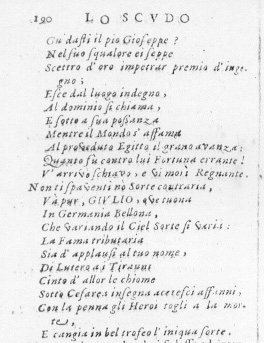 190 LO SCVDO
Gu' dasti il pio Gioseppe?
Nel suo squalore ei seppe
Scettro d'oro impetrar premio d'inge-
gno;
Esce dal luogo indegno,
Al dominio si chiama,
E sotto a sua possanza
Mentre il Mondo s'affama
Al proveduto Egitto il grano avanza:
Quanto fù contro lui Fortuna errante!
V'arrivò schiavo, e vi morì Regnante.
Non ti spaventi nò Sorte contraria,
Và pur, GIVLIO, ove tuona
In Germania Bellona,
Che variando il Ciel Sorte si varia:
La Fama tributaria
Sia d'applausi al tuo nome,
Di Lutero a i Tiranni
Cinto d'allor le chiome
Sotto Cesarea insegna accresci affanni,
Con la penna gli Heroi togli a la mor-
te,
E cangia in bel trofeo l'iniqua sorte.